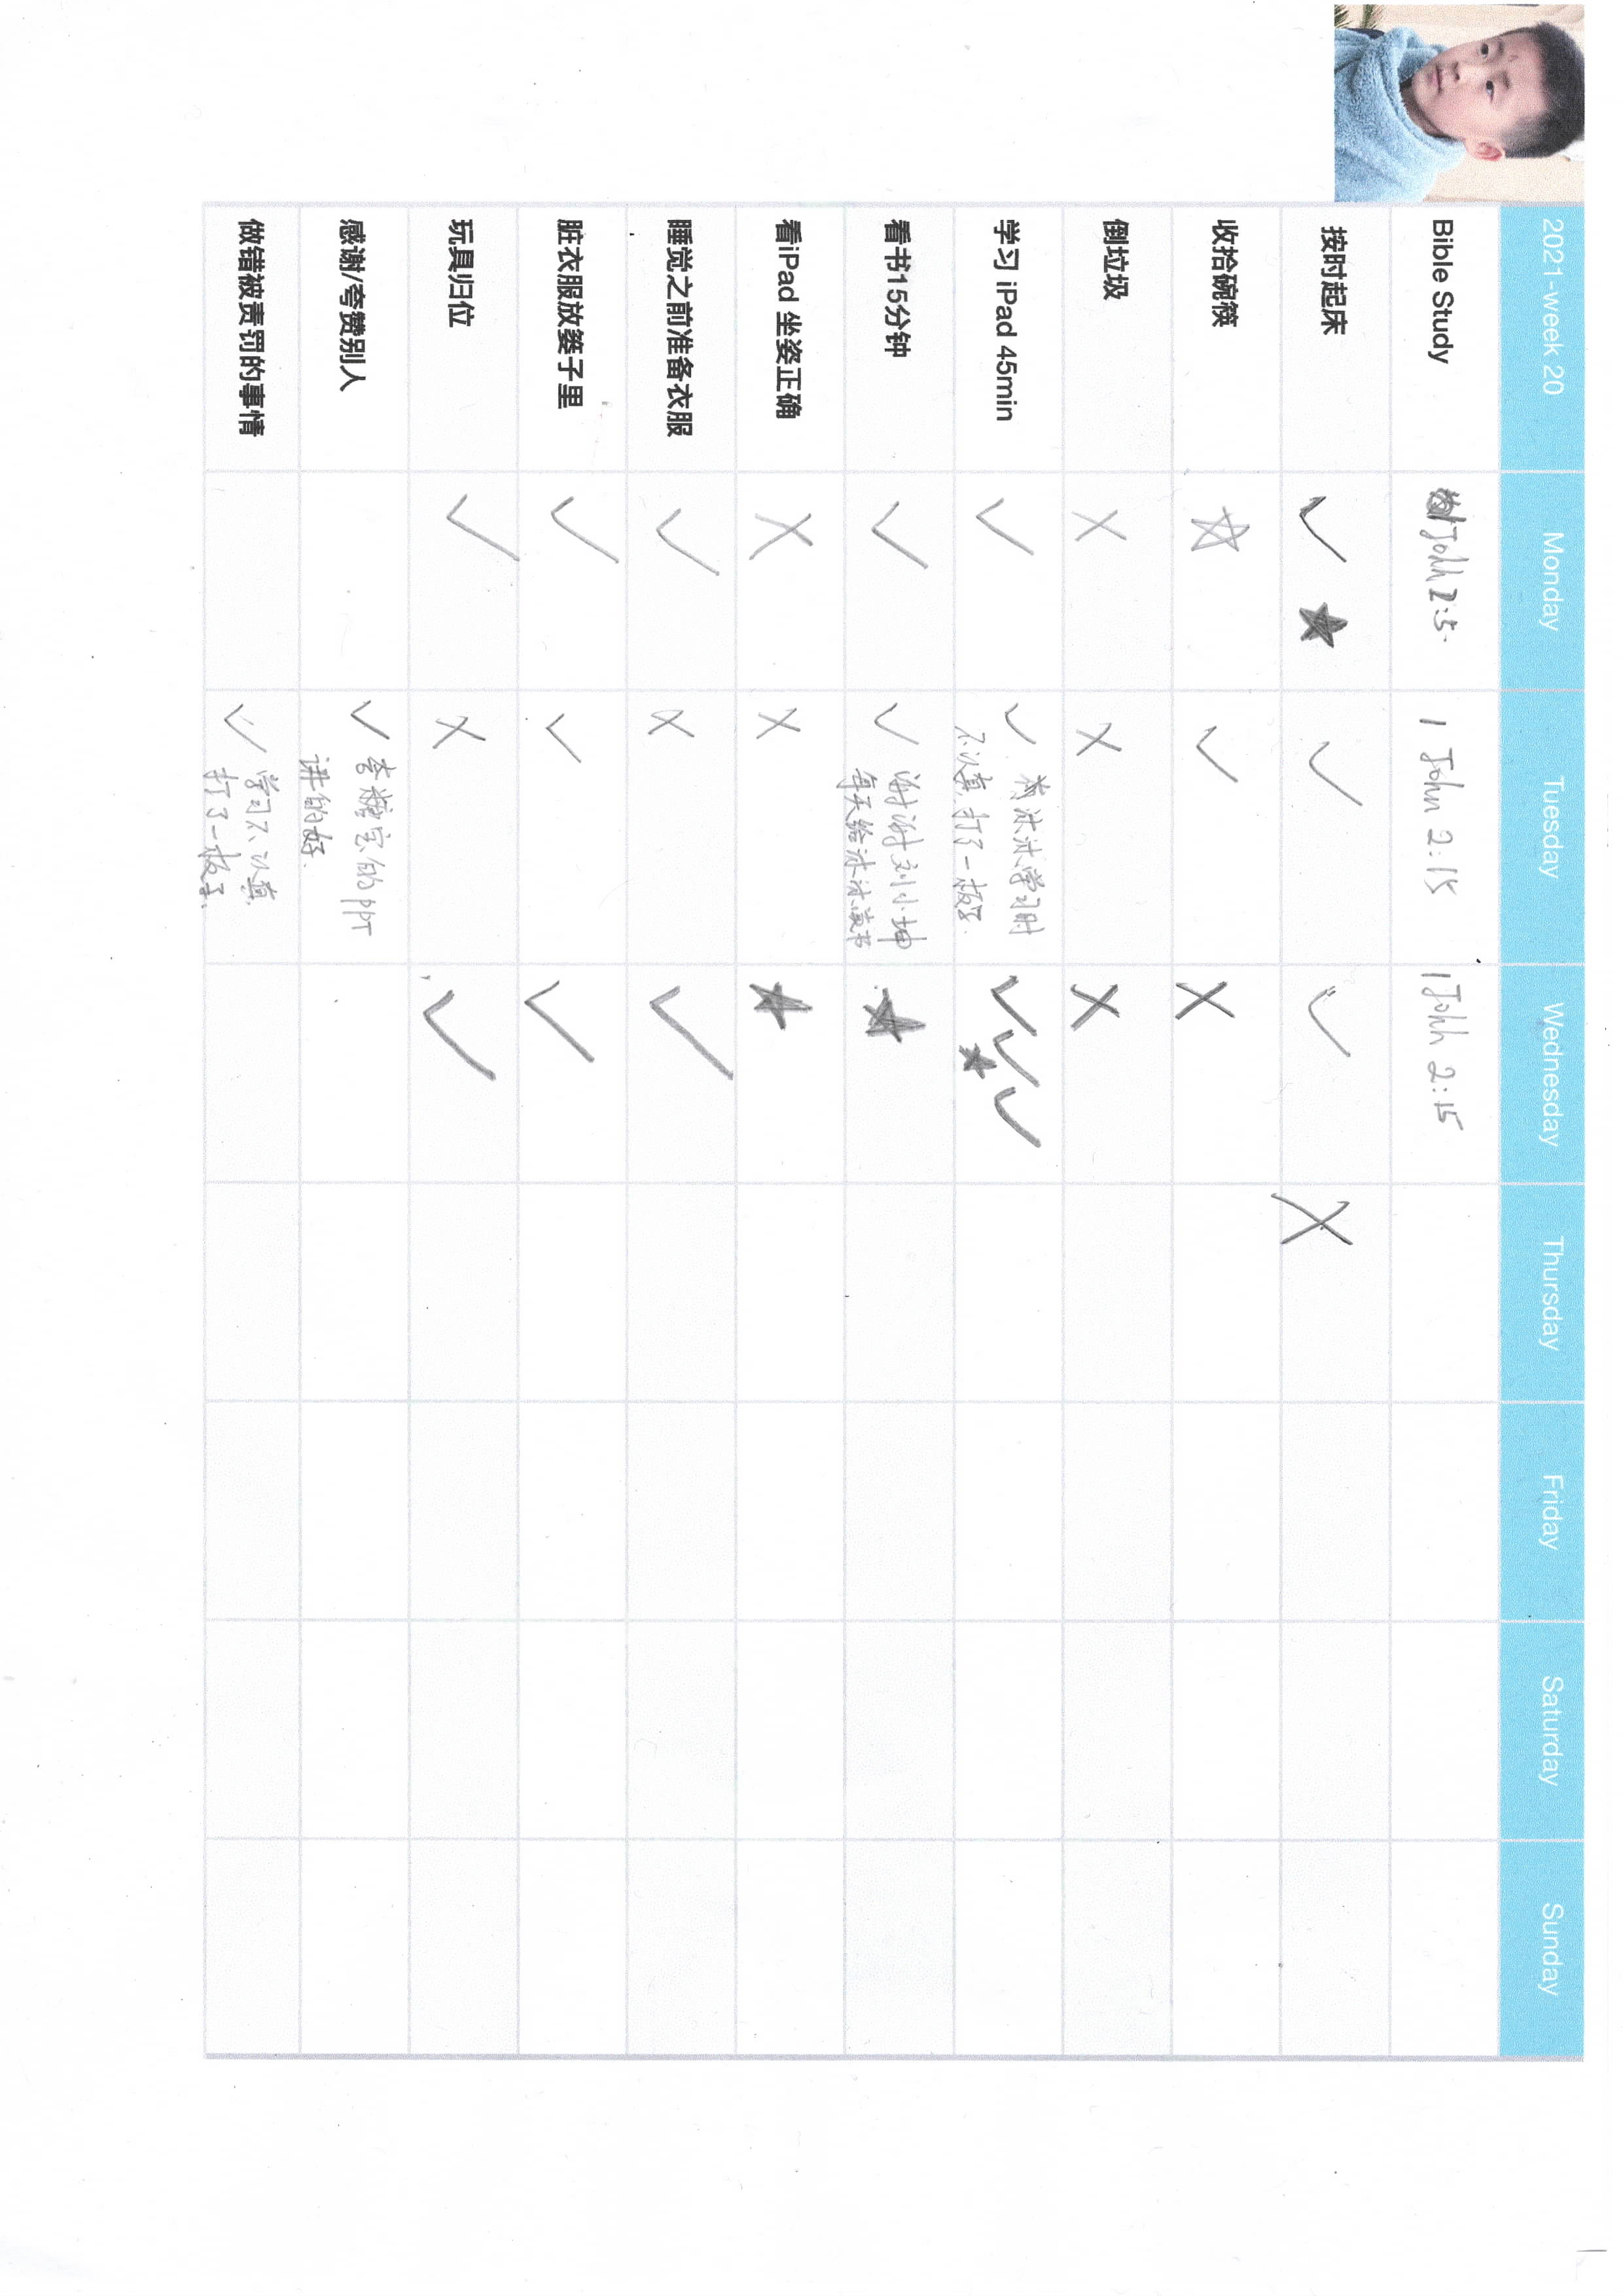 2021-week 20 Monday Tuesday Wednesday Thursday Friday Saturday Sunday
Bible Study 1 John 2:5 1 John 2:15 1 John 2:15
按时起床 ✓ ★ ✓ ✓ X
收拾碗筷 ☆ ✓ X
倒垃圾 X X X
学习 iPad 45min ✓ ✓ 冰冰学习时 ✓ ✓ ✓
不认真,打了一板子. ★
看书15分钟 ✓ ✓ 谢谢刘小坤 ★
每天给冰冰读书
看iPad 坐姿正确 X X ★
睡觉之前准备衣服 ✓ X ✓
脏衣服放篓子里 ✓ ✓ ✓
玩具归位 ✓ X ✓
感谢/夸赞别人 ✓ 夸糖宝的PPT
讲的好.
做错被责罚的事情 ✓ 学习不认真
打了一板子.